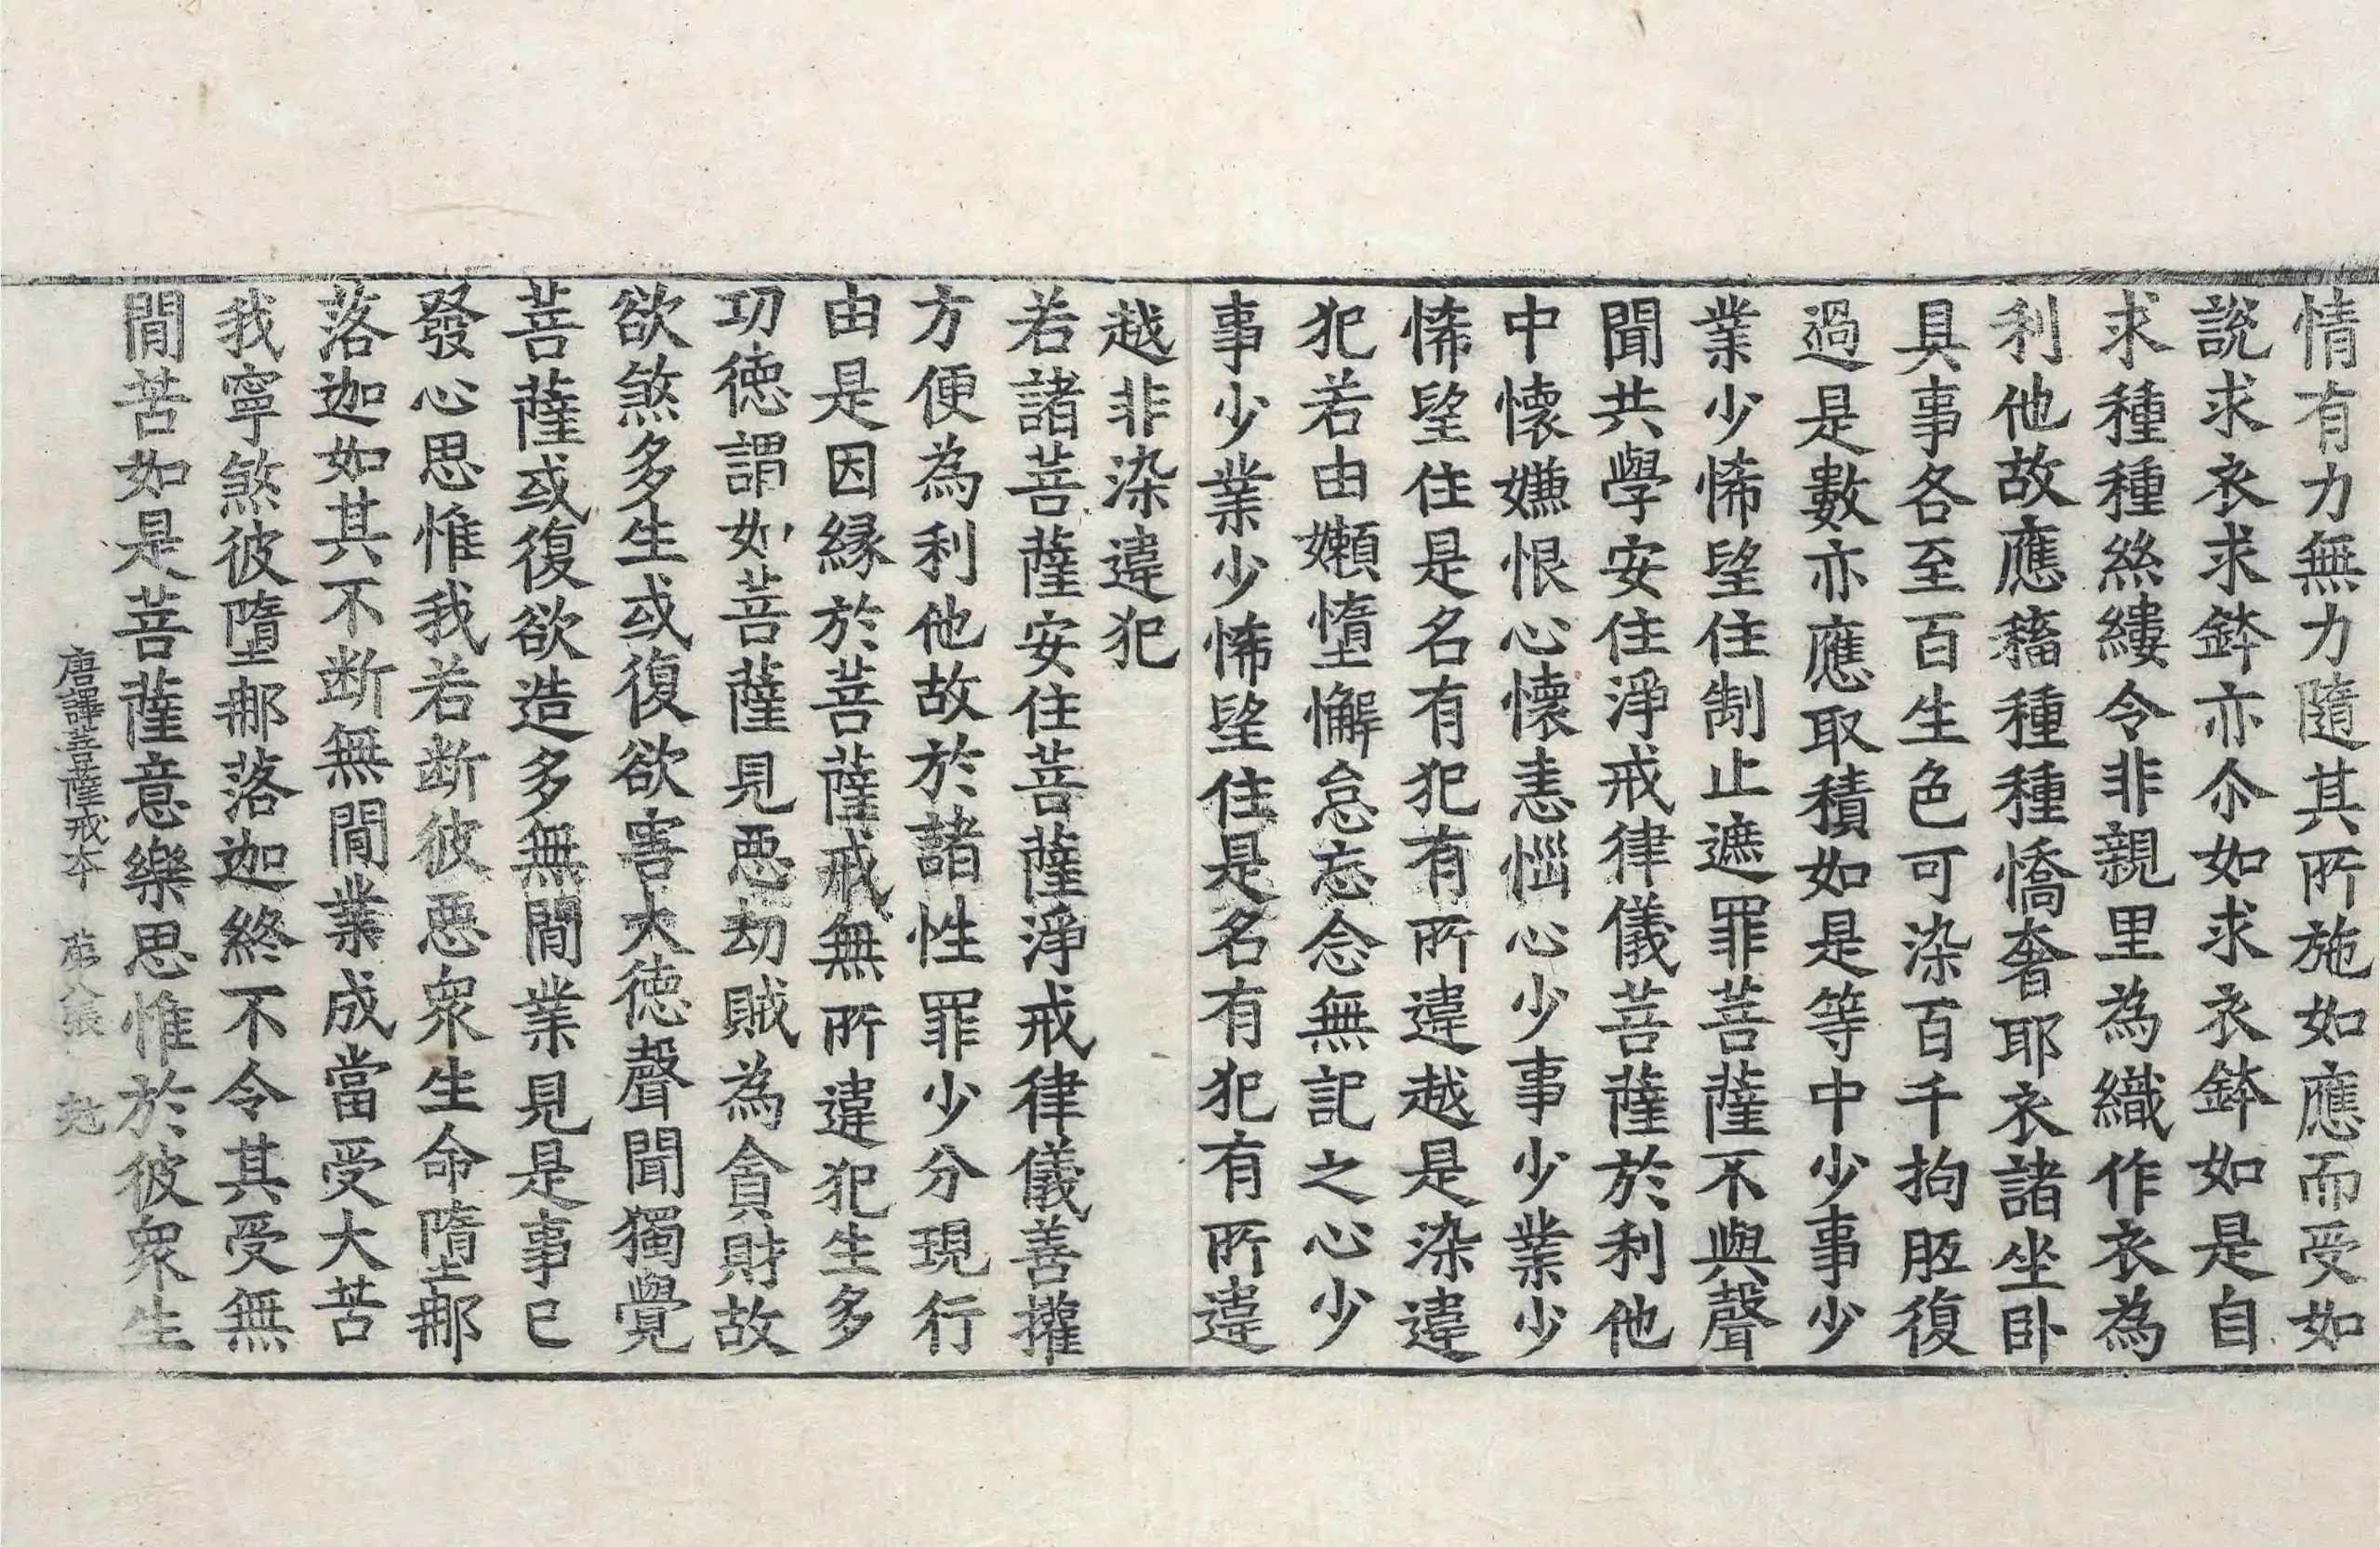 情有力無力隨其所施如應而受如
說求衣求鉢亦尒如求衣鉢如是自
求種種絲縷令非親里為織作衣為
利他故應稸種種憍奢耶衣諸坐卧
具事各至百生色可染百千拘胝復
過是數亦應取積如是等中少事少
業少悕望住制止遮罪菩薩不與聲
聞共學安住淨戒律儀菩薩於利他
中懷嫌恨心懷恚惱心少事少業少
悕望住是名有犯有所違越是染違
犯若由嬾惰懈怠忘念無記之心少
事少業少悕望住是名有犯有所違
越非染違犯
若諸菩薩安住菩薩淨戒律儀善權
方便為利他故於諸性罪少分現行
由是因緣於菩薩戒無所違犯生多
功德謂如菩薩見惡劫賊為貪財故
欲煞多生或復欲害大德聲聞獨覺
菩薩或復欲造多無閒業見是事已
發心思惟我若斷彼惡衆生命墮那
落迦如其不斷無閒業成當受大苦
我寧煞彼墮那落迦終不令其受無
閒苦如是菩薩意樂思惟於彼衆生
唐譯菩薩戒本 第八張